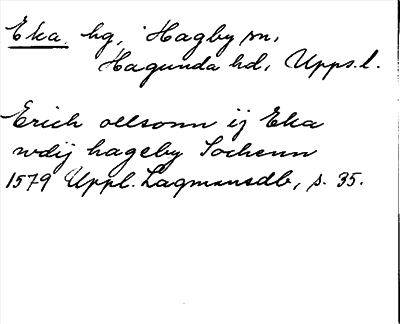 Eka. hg, Hagby sn,
Hagunda hd, Upps. l.
Erich oellsonn ij Eka
wdij hageby Sochenn
1579 Uppl. Lagmansdb, s. 35.